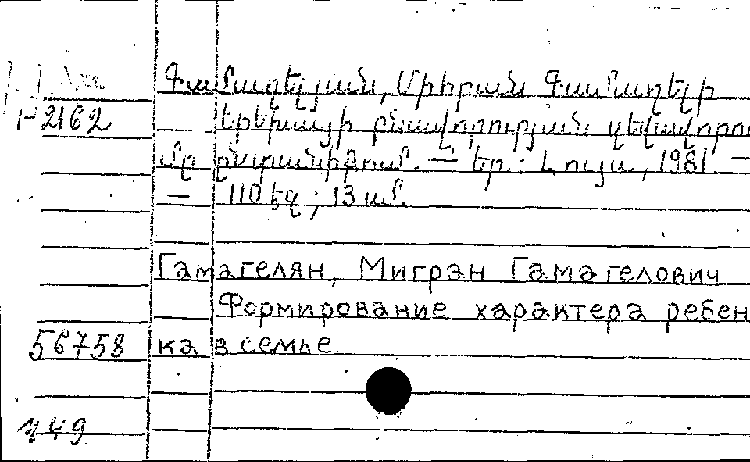 Գամաղելյան, Միհրան Գամաղելի
1-2162 Երեխայի բնավորության ձևավորու
մը ընտանիքում. — Եր.: Լույս, 1981 —
— 110 էջ; 13 սմ.
Гамагелян, Мигран Гамагелович
Формирование характера ребен
56758 ка в семье
449